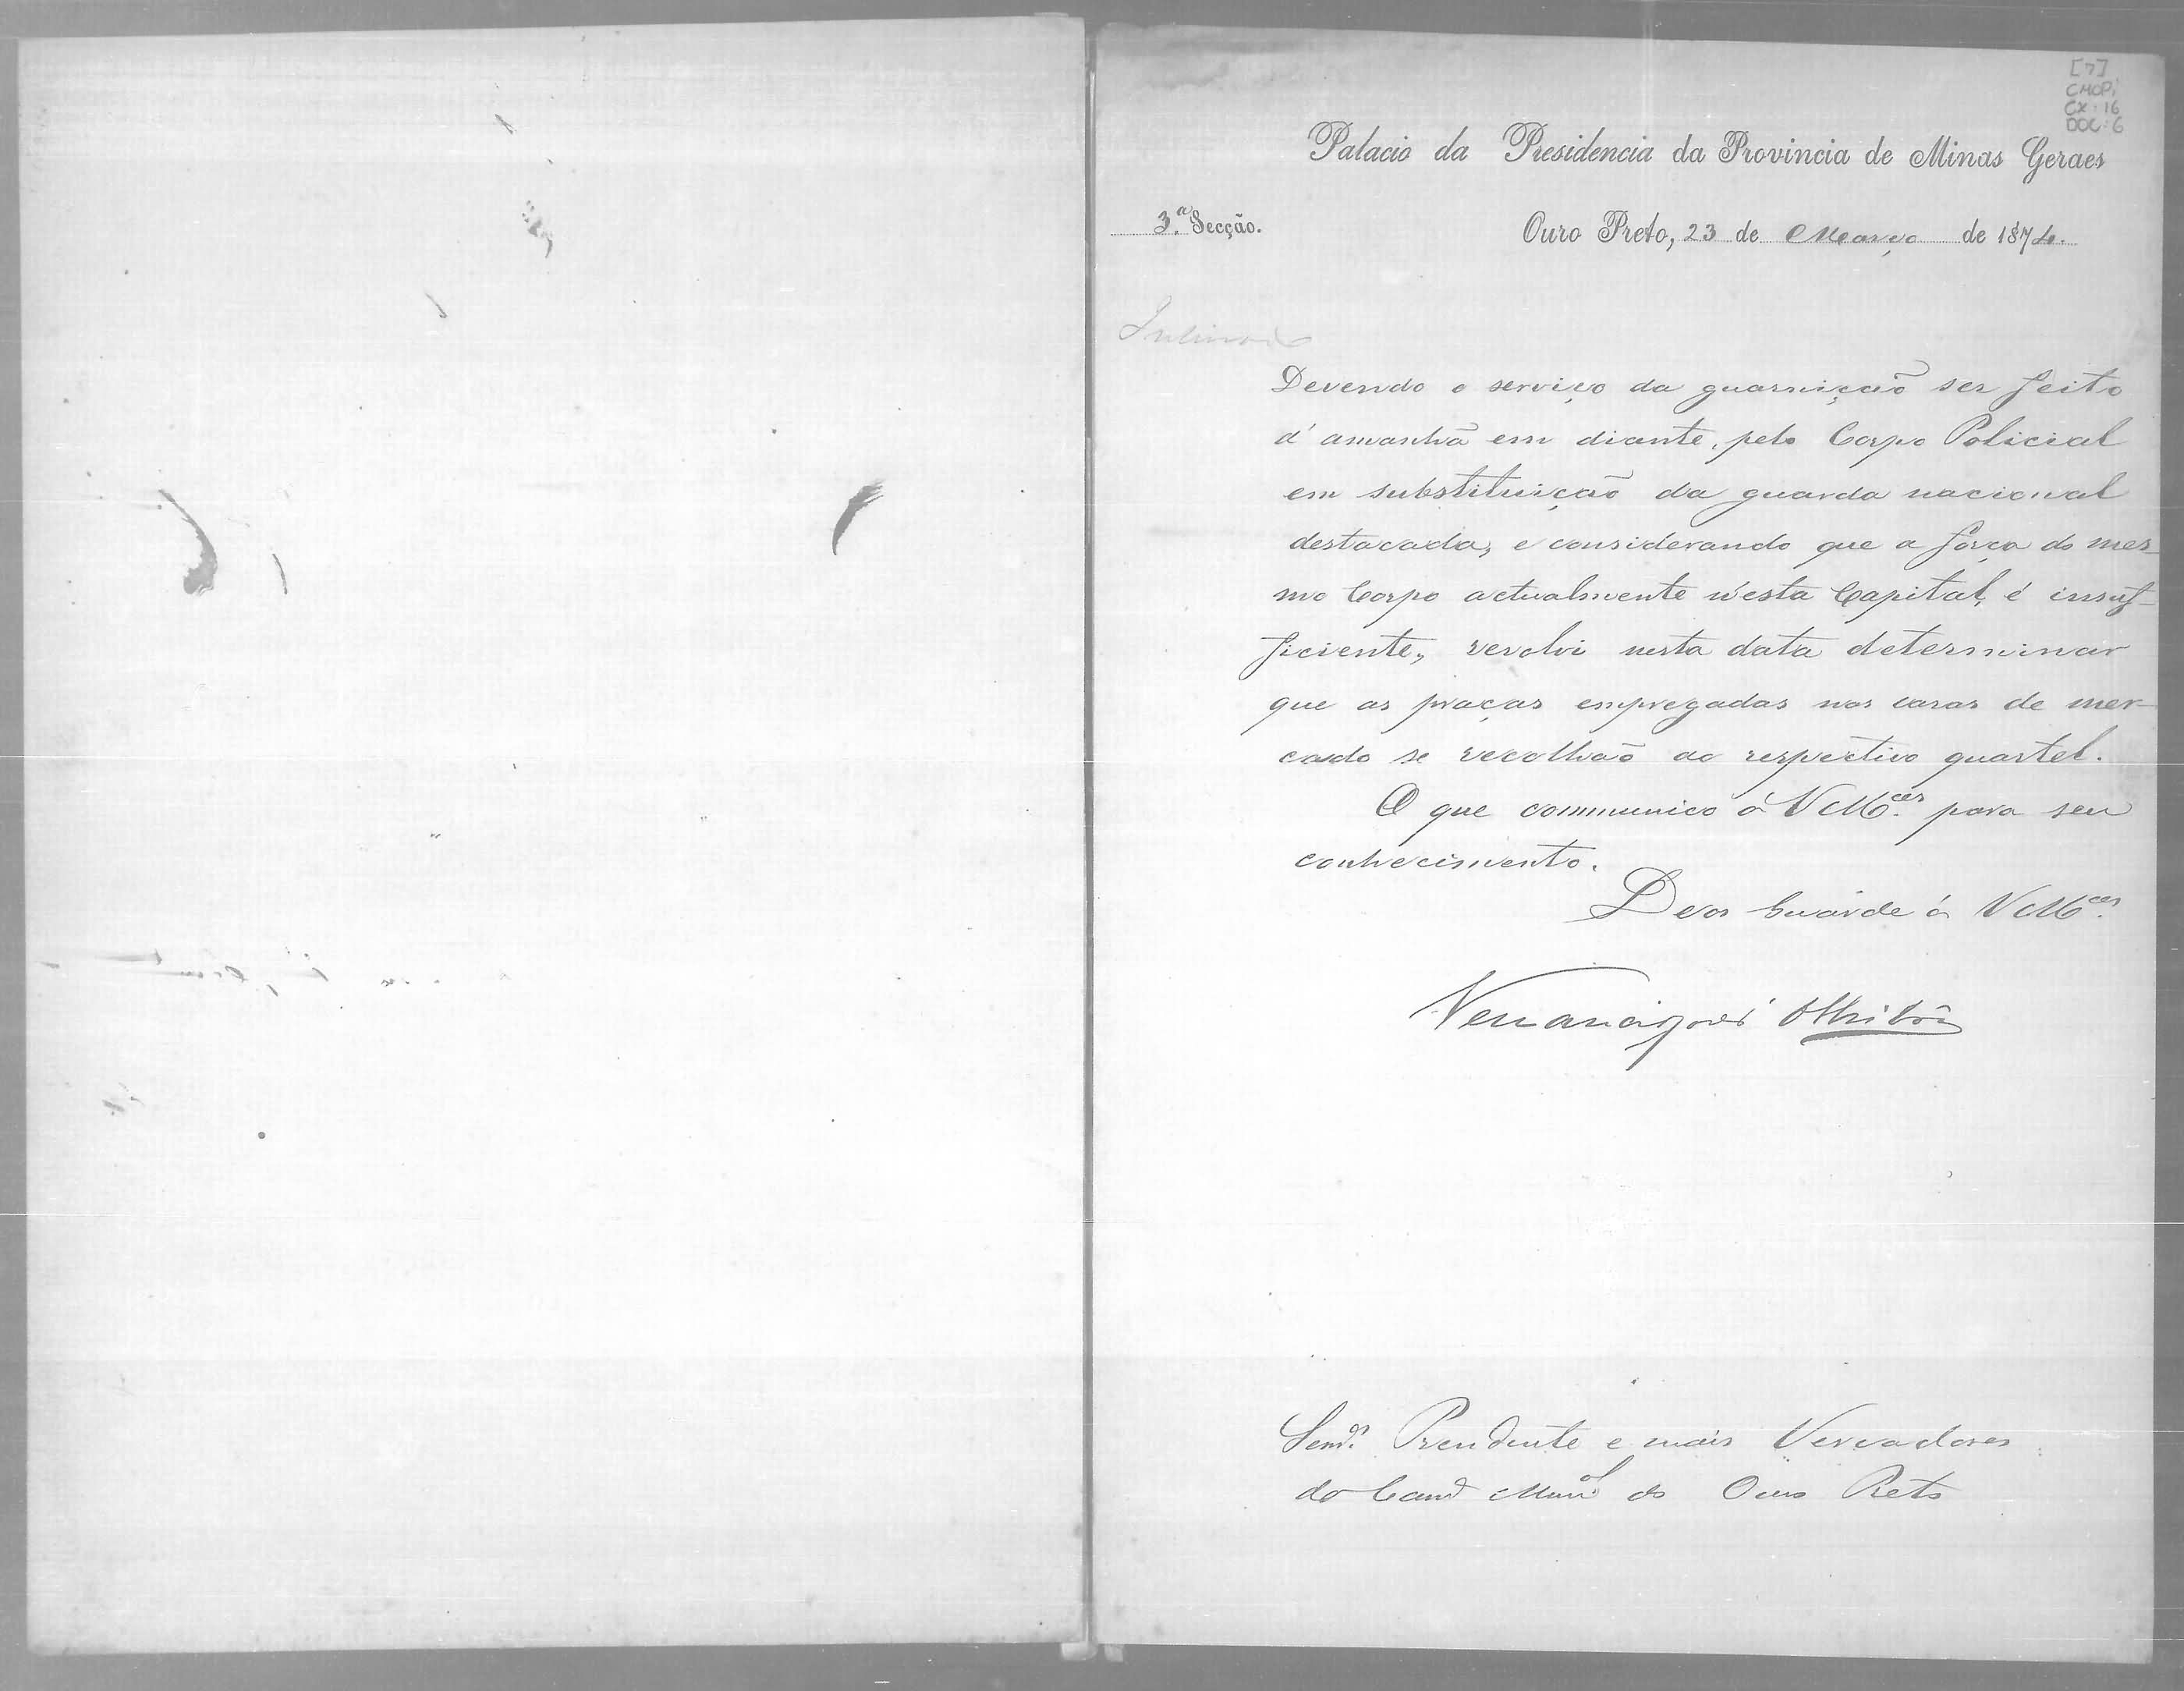 [7]
CMOP;
CX: 16
DOC: 6
Palacio da Presidencia da Provincia de Minas Geraes
3.ª Secção.
Ouro Preto, 23 de Março de 1874.
Devendo o serviço da guarnição ser feito
d'amanhã em diante, pelo Corpo Policial
em substituição da guarda nacional
destacada, e considerando que a força do mes-
mo Corpo actualmente n'esta Capital, é insuf-
ficiente, resolvi nesta data determinar
que as praças empregadas nas casas de mer-
cado se recolhão ao respectivo quartel.
O que communico á VM.ces para seu
conhecimento.
Deos Guarde á VM.ces
Venancio José Olivr.ª Lisbôa
Senrs. Presidente e mais Vereadores
da Camª Munal do Ouro Preto